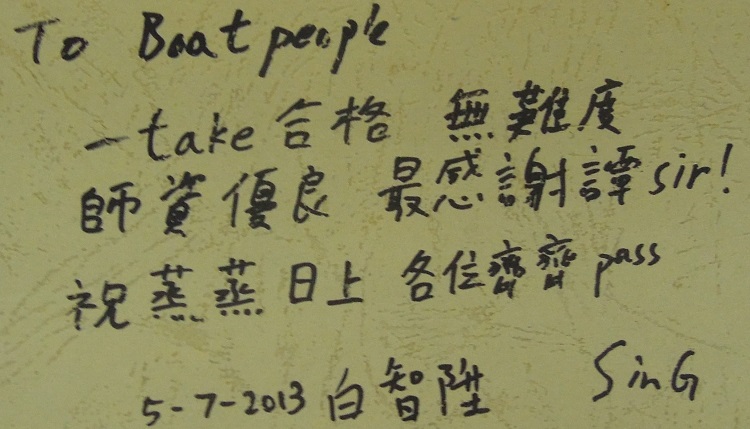 To Boat people
一take 合格 無難度
師資優良 最感謝譚sir!
祝蒸蒸日上 各位齊齊pass
5-7-2013 白智陞 SinG